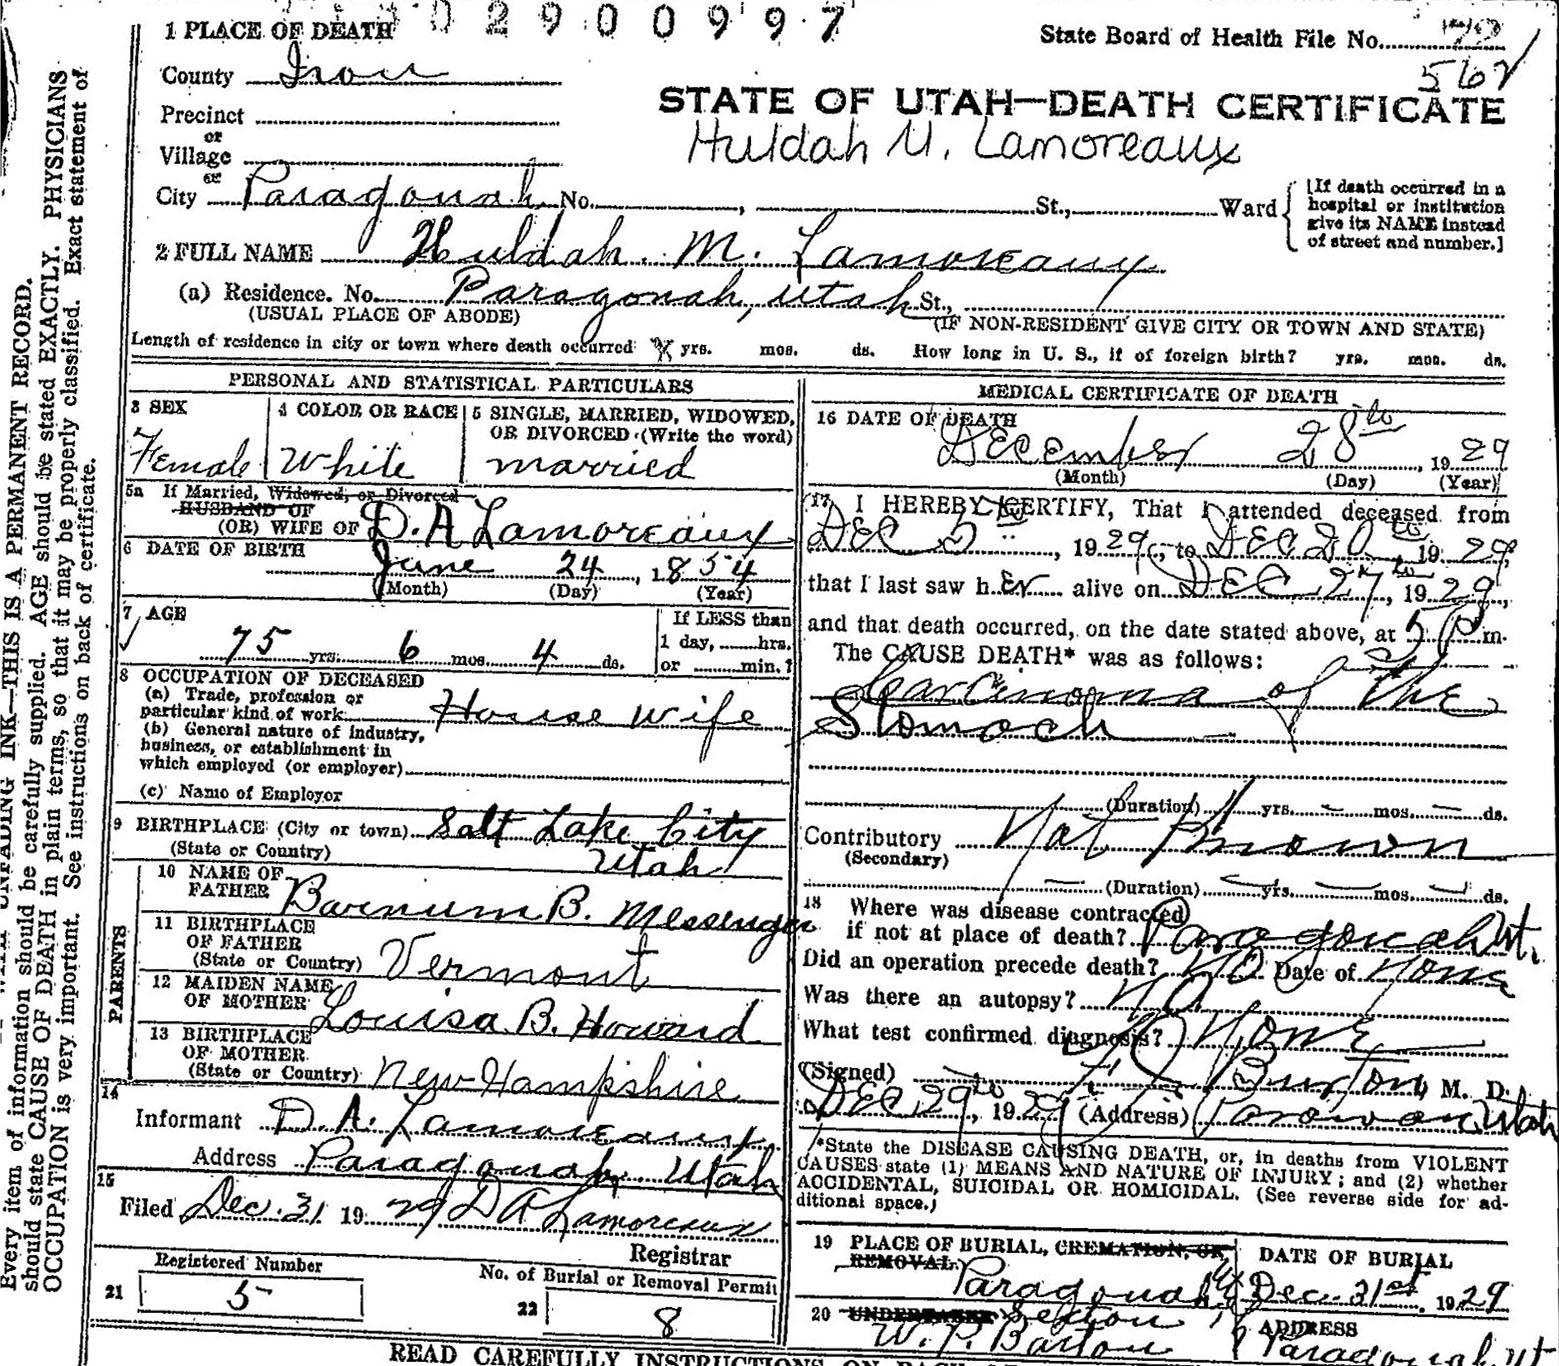 302900997
1 PLACE OF DEATH
State Board of Health File No.
County Iron
562
STATE OF UTAH—DEATH CERTIFICATE
Precinct
or
Huldah M. Lamoreaux
Village
or
City Paragonah No. , St., Ward
[If death occurred in a
hospital or institution
give its NAME instead
of street and number.]
2 FULL NAME Huldah. M. Lamoreaux
(a) Residence. No. Paragonah, Utah St.,
(USUAL PLACE OF ABODE) (IF NON-RESIDENT GIVE CITY OR TOWN AND STATE)
Length of residence in city or town where death occurred yrs. mos. ds. How long in U. S., if of foreign birth? yrs. mos. ds.
PERSONAL AND STATISTICAL PARTICULARS
3 SEX
Female
4 COLOR OR RACE
White
5 SINGLE, MARRIED, WIDOWED,
OR DIVORCED (Write the word)
married
5a If Married, Widowed, or Divorced
HUSBAND OF
(OR) WIFE OF D. A Lamoreaux
6 DATE OF BIRTH
June 24, 1854
(Month) (Day) (Year)
7 AGE
75 yrs. 6 mos. 4 ds.
If LESS than
1 day, hrs.
or min.?
8 OCCUPATION OF DECEASED
(a) Trade, profession or
particular kind of work House wife
(b) General nature of industry,
business, or establishment in
which employed (or employer)
(c) Name of Employer
9 BIRTHPLACE (City or town) Salt Lake City
(State or Country) Utah
PARENTS
10 NAME OF
FATHER Barnum B. Messenger
11 BIRTHPLACE
OF FATHER
(State or Country) Vermont
12 MAIDEN NAME
OF MOTHER Louisa B. Howard
13 BIRTHPLACE
OF MOTHER
(State or Country) New Hampshire
14
Informant D. A. Lamoreaux
Address Paragonah Utah
15
Filed Dec. 31 1929 D A Lamoreaux
Registrar
Registered Number
21 5
No. of Burial or Removal Permit
22 8
MEDICAL CERTIFICATE OF DEATH
16 DATE OF DEATH
December 28th, 1929
(Month) (Day) (Year)
17 I HEREBY CERTIFY, That I attended deceased from
Dec 5th, 1929, to Dec 20th, 1929,
that I last saw her alive on Dec 27th, 1929,
and that death occurred, on the date stated above, at 5 P m.
The CAUSE DEATH* was as follows:
Carcinoma of the
Stomoch
(Duration) 1 yrs. — mos. — ds.
Contributory Not Known
(Secondary)
(Duration) — yrs. — mos. — ds.
18 Where was disease contracted
if not at place of death? Paragonah Ut.
Did an operation precede death? No Date of None
Was there an autopsy? No
What test confirmed diagnosis? None
(Signed) Burton, M. D.
Dec 29th, 1929 (Address) Parowan, Utah
*State the DISEASE CAUSING DEATH, or, in deaths from VIOLENT
CAUSES state (1) MEANS AND NATURE OF INJURY; and (2) whether
ACCIDENTAL, SUICIDAL OR HOMICIDAL. (See reverse side for ad-
ditional space.)
19 PLACE OF BURIAL, CREMATION, OR
REMOVAL
Paragonah
DATE OF BURIAL
Dec. 31st, 1929
20 UNDERTAKER Sexton
W. P. Barton
ADDRESS
Paragonah Ut
READ CAREFULLY INSTRUCTIONS ON BACK
UNFADING INK—THIS IS A PERMANENT RECORD.
Every item of information should be carefully supplied. AGE should be stated EXACTLY. PHYSICIANS
should state CAUSE OF DEATH in plain terms, so that it may be properly classified. Exact statement of
OCCUPATION is very important. See instructions on back of certificate.